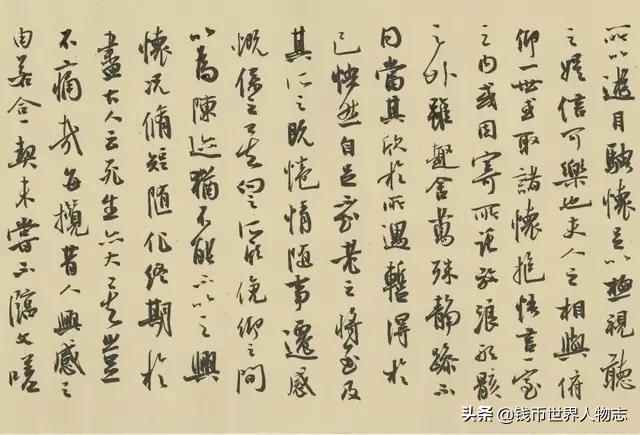 所以遊目騁懷足以極視聽
之娛信可樂也夫人之相與俯
仰一世或取諸懷抱悟言一室
之內或因寄所託放浪形骸
之外雖趣舍萬殊靜躁不
同當其欣於所遇暫得於
己怏然自足不知老之將至及
其所之既惓情隨事遷感
慨係之矣向之所欣俛仰之間
以為陳迹猶不能不以之興
懷況脩短隨化終期於
盡古人云死生亦大矣豈
不痛哉每攬昔人興感之
由若合一契未嘗不臨文嗟
头条 @钱币世界人物志